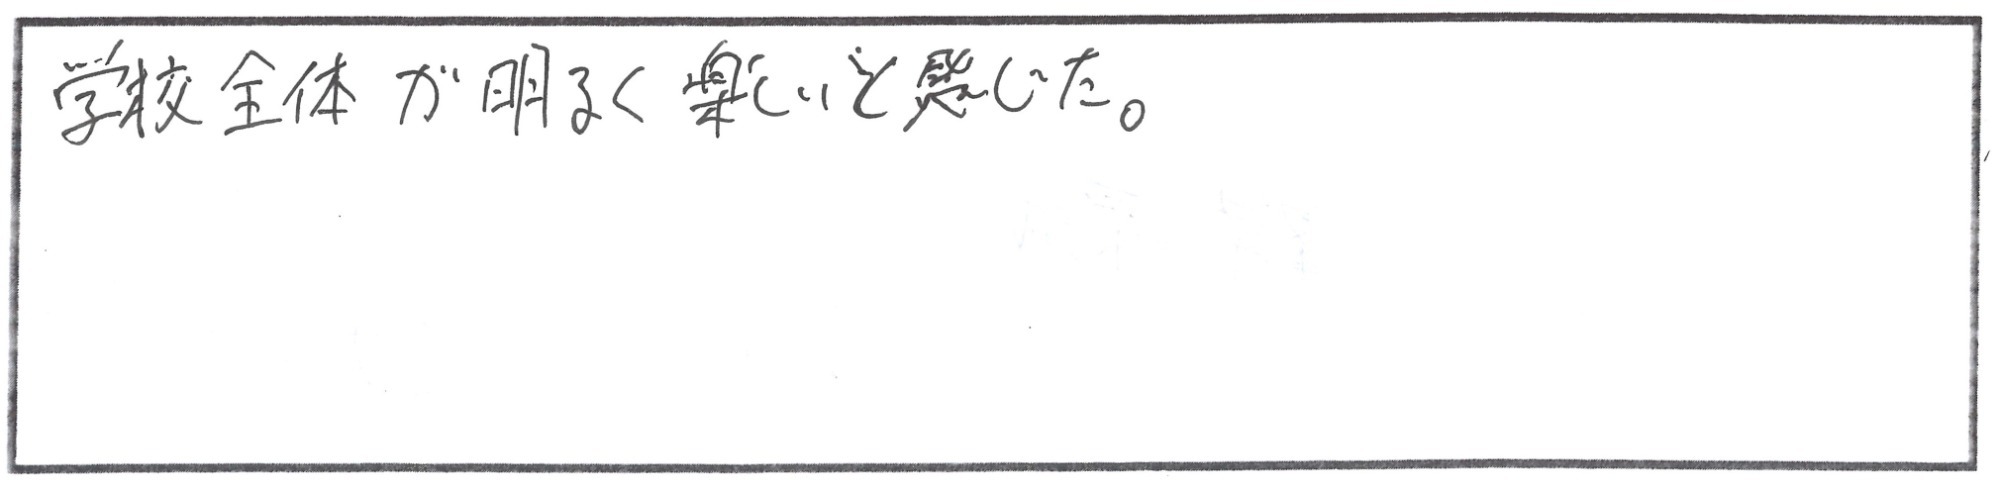 学校全体が明るく楽しいと感じた。